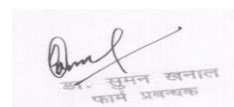 डा. सुमन खनाल
फार्म प्रबन्धक